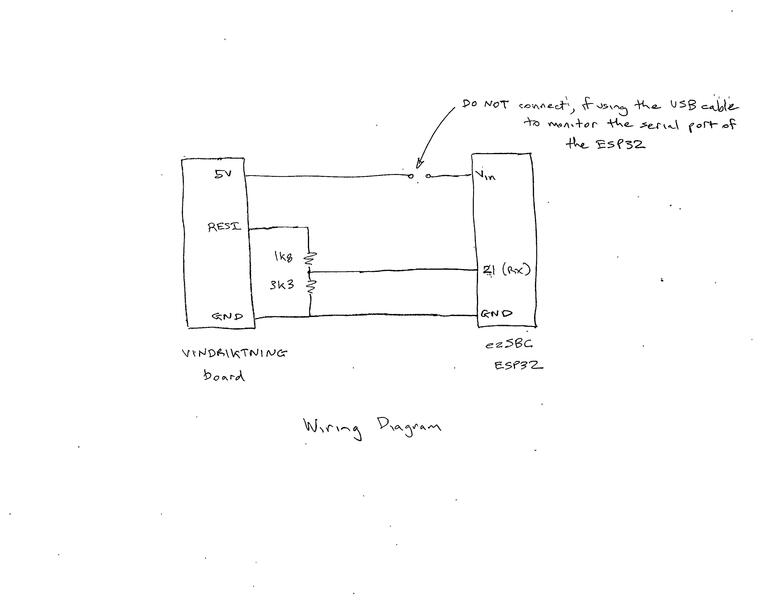 DO NOT connect, if using the USB cable
to monitor the serial port of
the ESP32
5V
Vin
REST
1k8
21 (Rx)
3k3
GND
GND
VINDRIKTNING
board
ezSBC
ESP32
Wiring Diagram